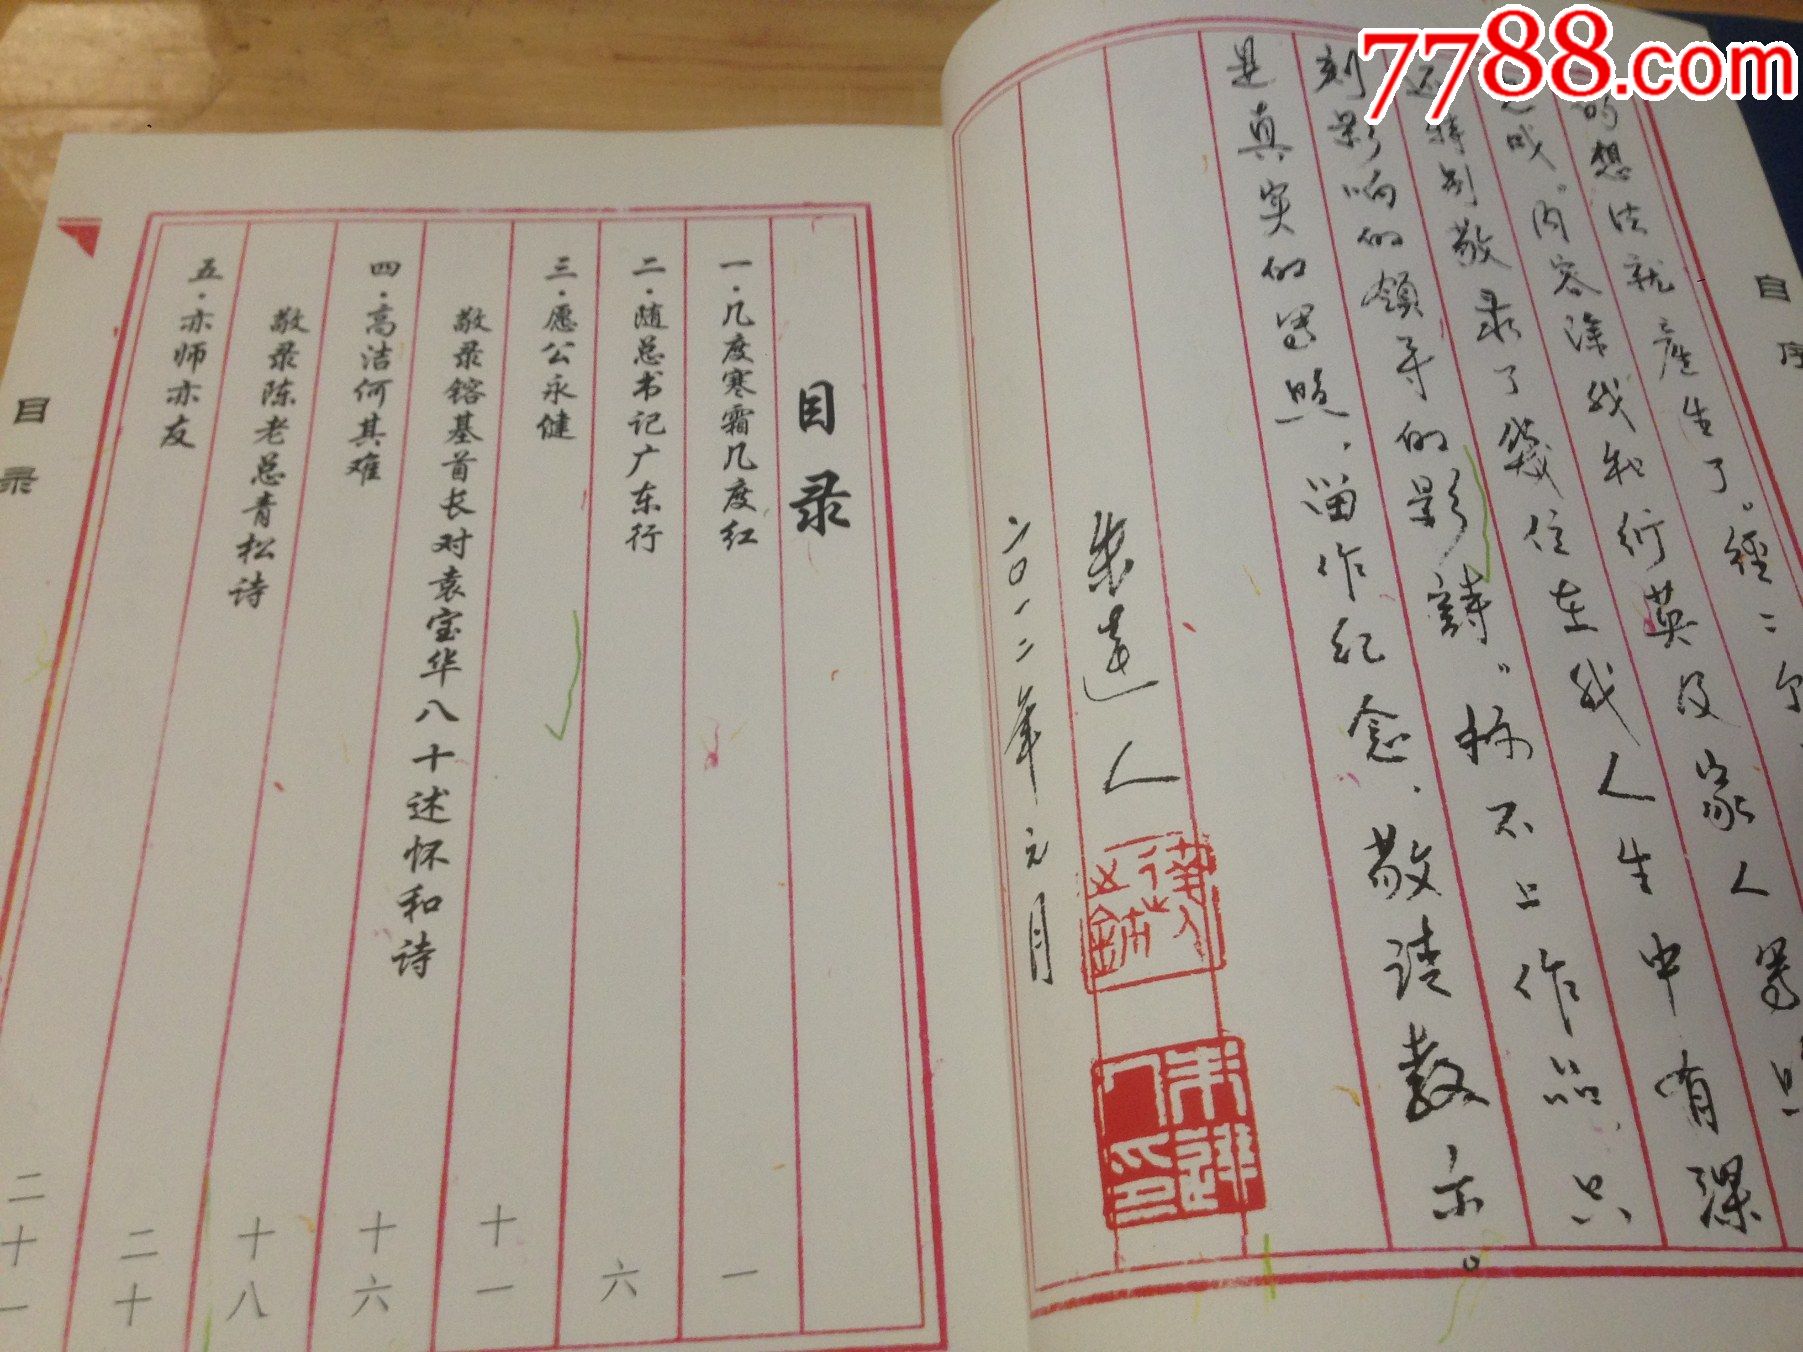 7788.com
自序
的想法就产生了。經二个
之成。内容除我和衍英及家人写照
还特别敬录了幾位在我人生中有深
刻影响的領导的影詩。称不上作品，只
是真实的写照，留作纪念，敬请教示。
朱達人
二〇一二年元月
目录
一·几度寒霜几度红 一
二·随总书记广东行 六
三·愿公永健 十一
敬录镕基首长对袁宝华八十述怀和诗
四·高洁何其难 十六
敬录陈老总青松诗 十八
五·亦师亦友 二十
二十一
目录